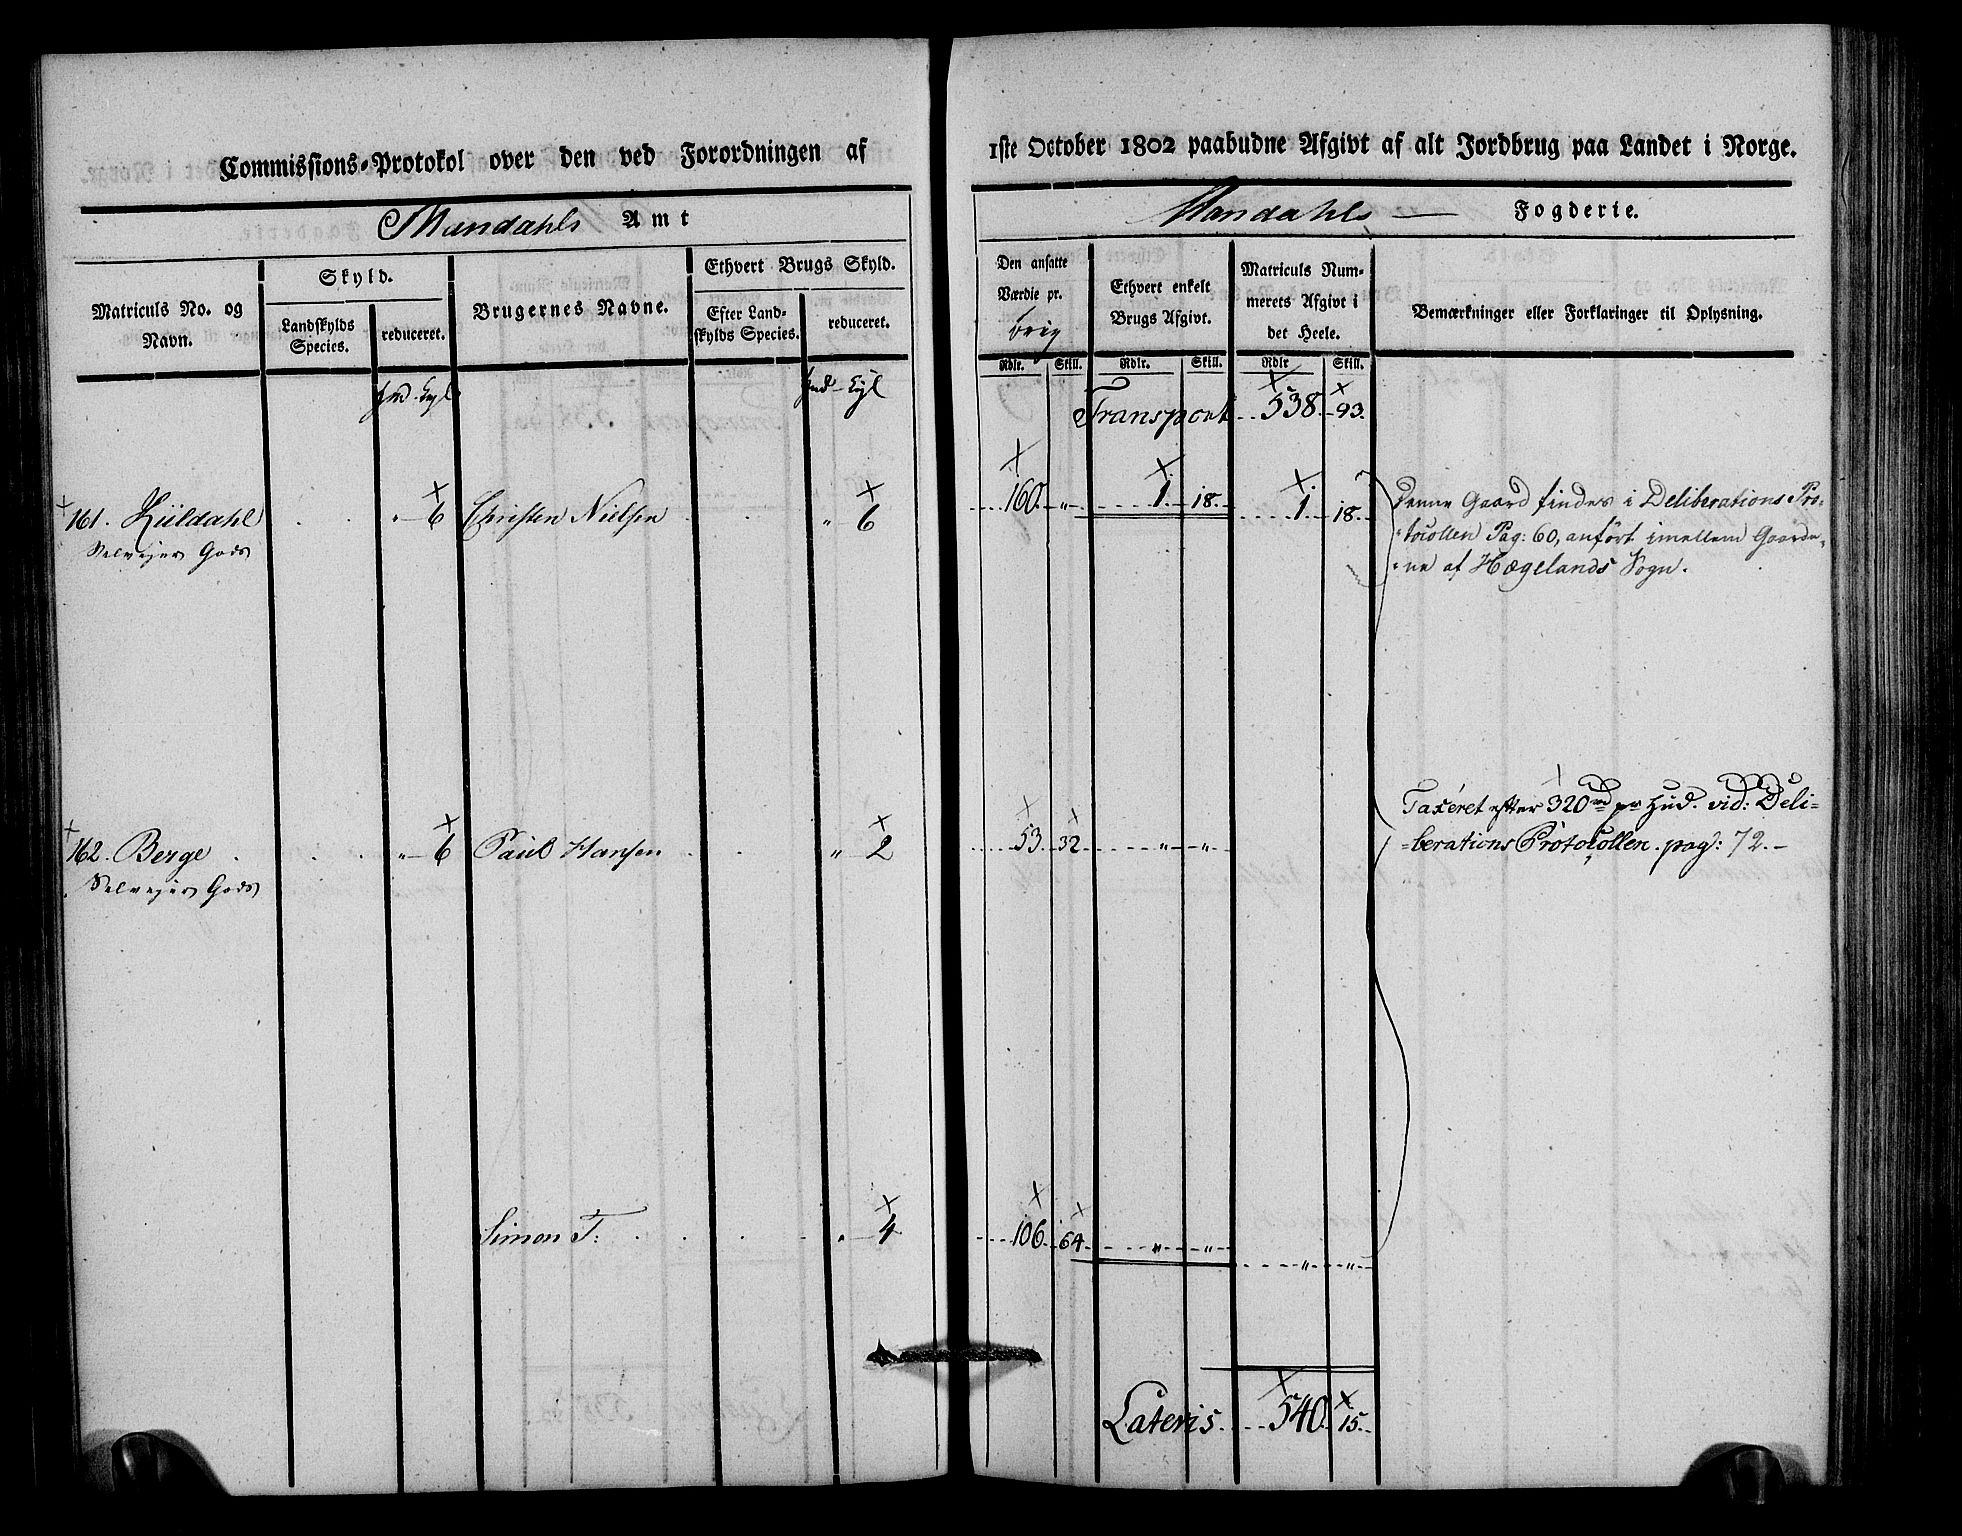 Commissions-Protokol over den ved Forordningen af
Mandahls Amt
Matriculs No. og Navn.
Skyld.
Landskylds Species.
reduceret.
Brugernes Navne.
Ethvert Brugs Skyld.
Efter Landskylds Species.
reduceret.
161. Kiildahl . . " 6 Christen Nielsen . . " 6
Selveyer Gods
162. Berge . . . " 6 Paul Hansen . . " 2
Selveyer Gods
Simon T: . . . . " 4
1ste October 1802 paabudne Afgivt af alt Jordbrug paa Landet i Norge.
Mandahls — Fogderie.
Den ansatte Værdie pr.
Ethvert enkelt Brugs Afgivt.
Matriculs Nummerets Afgivt i det Heele.
Bemærkninger eller Forklaringer til Oplysning.
Rdlr. Skill. Rdlr. Skill. Rdlr Skill.
Transport 538. 93.
160. " 1. 18. 1. 18. Denne Gaard findes i Deliberations Pro-
tocollen Pag: 60, anført imellem Gaarde-
ne af Hægelands Sogn.
Taxeret efter 320rd pr Hud. vid: Deli-
53. 32 " " =berations Protocollen. pag: 72.-
106. 64. " "
" "
Lateris 540. 15.